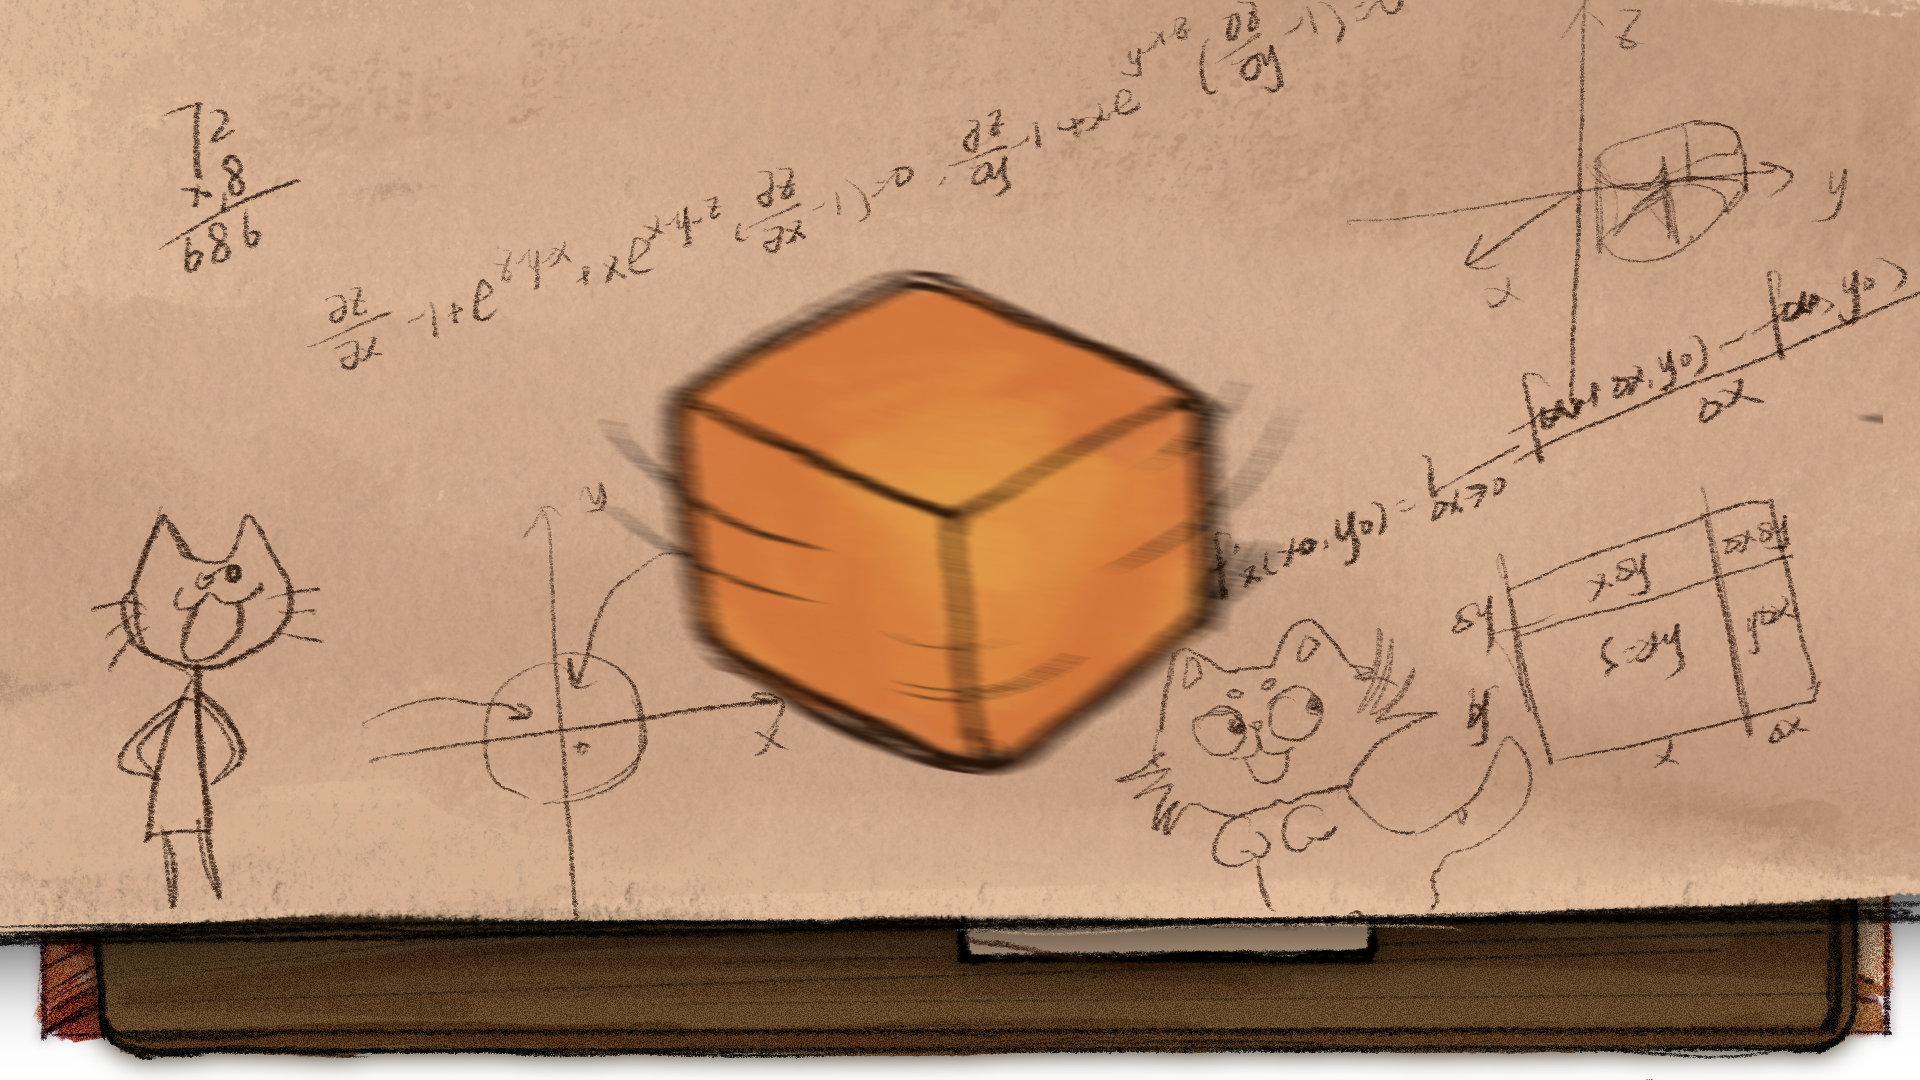 72
×8
686
∂z/∂x -1+e^z-y-x + xe^x-y-z (∂z/∂x -1)=0 , ∂z/∂y -1 + xe^y-x-z (∂z/∂y -1)=0
z
y
x
f'x(x0,y0) = L Δx→0 f(x0+Δx,y0) - f(x0,y0) / Δx
y
x
xδy
ΔxΔy
δy
S=xy
yΔx
y
x
Δx